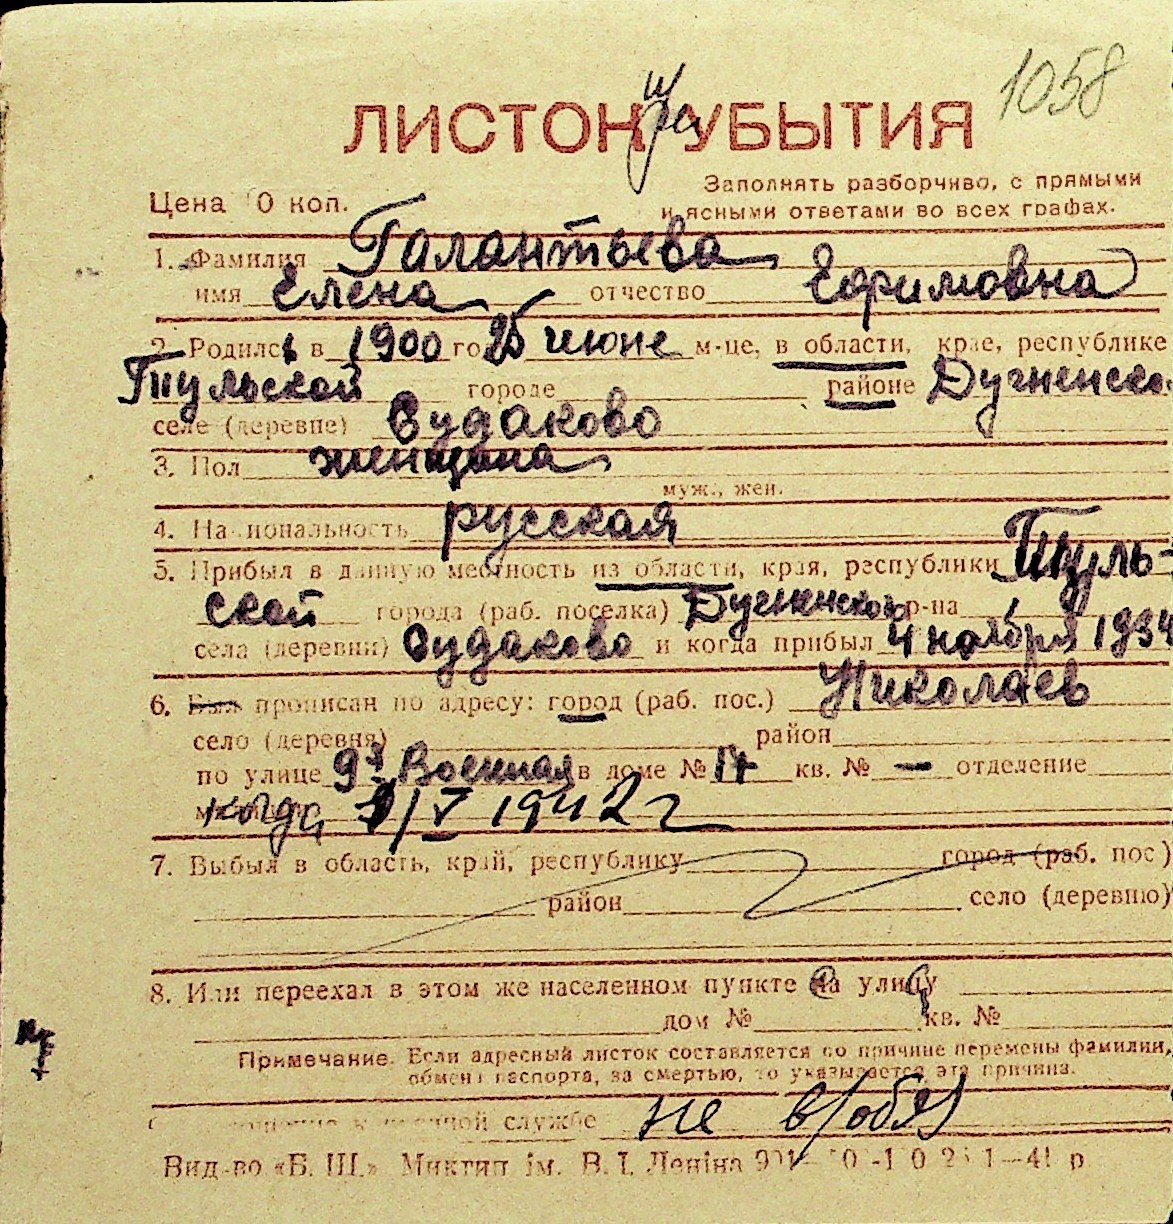 1058
ЛИСТОК УБЫТИЯ
Цена 10 коп.
Заполнять разборчиво, с прямыми
и ясными ответами во всех графах.
1. Фамилия Галантьева
имя Елена отчество Ефимовна
2. Родилсь в 1900 го 25 июне м-це, в области, крае, республике
Тульской городе районе Дугненско
селе (деревне) Судаково
3. Пол женщина
муж., жен.
4. Национальность русская
5. Прибыл в данную местность из области, края, республики Туль-
ской города (раб. поселка) Дугненского р-на
села (деревни) Судаково и когда прибыл 4 ноября 1934
6. Был прописан по адресу: город (раб. пос.) Николаев
село (деревня) район
по улице 9я Военная в доме № 17 кв. № — отделение
когда 9/V 1942 г
7. Выбыл в область, край, республику город (раб. пос)
район село (деревню)
8. Или переехал в этом же населенном пункте на улицу
дом № кв. №
Примечание. Если адресный листок составляется по причине перемены фамилии,
обмена паспорта, за смертью, то указывается эта причина.
службе не в/обяз
Вид-во «Б. Ш.» Миктип ім. В. І. Леніна